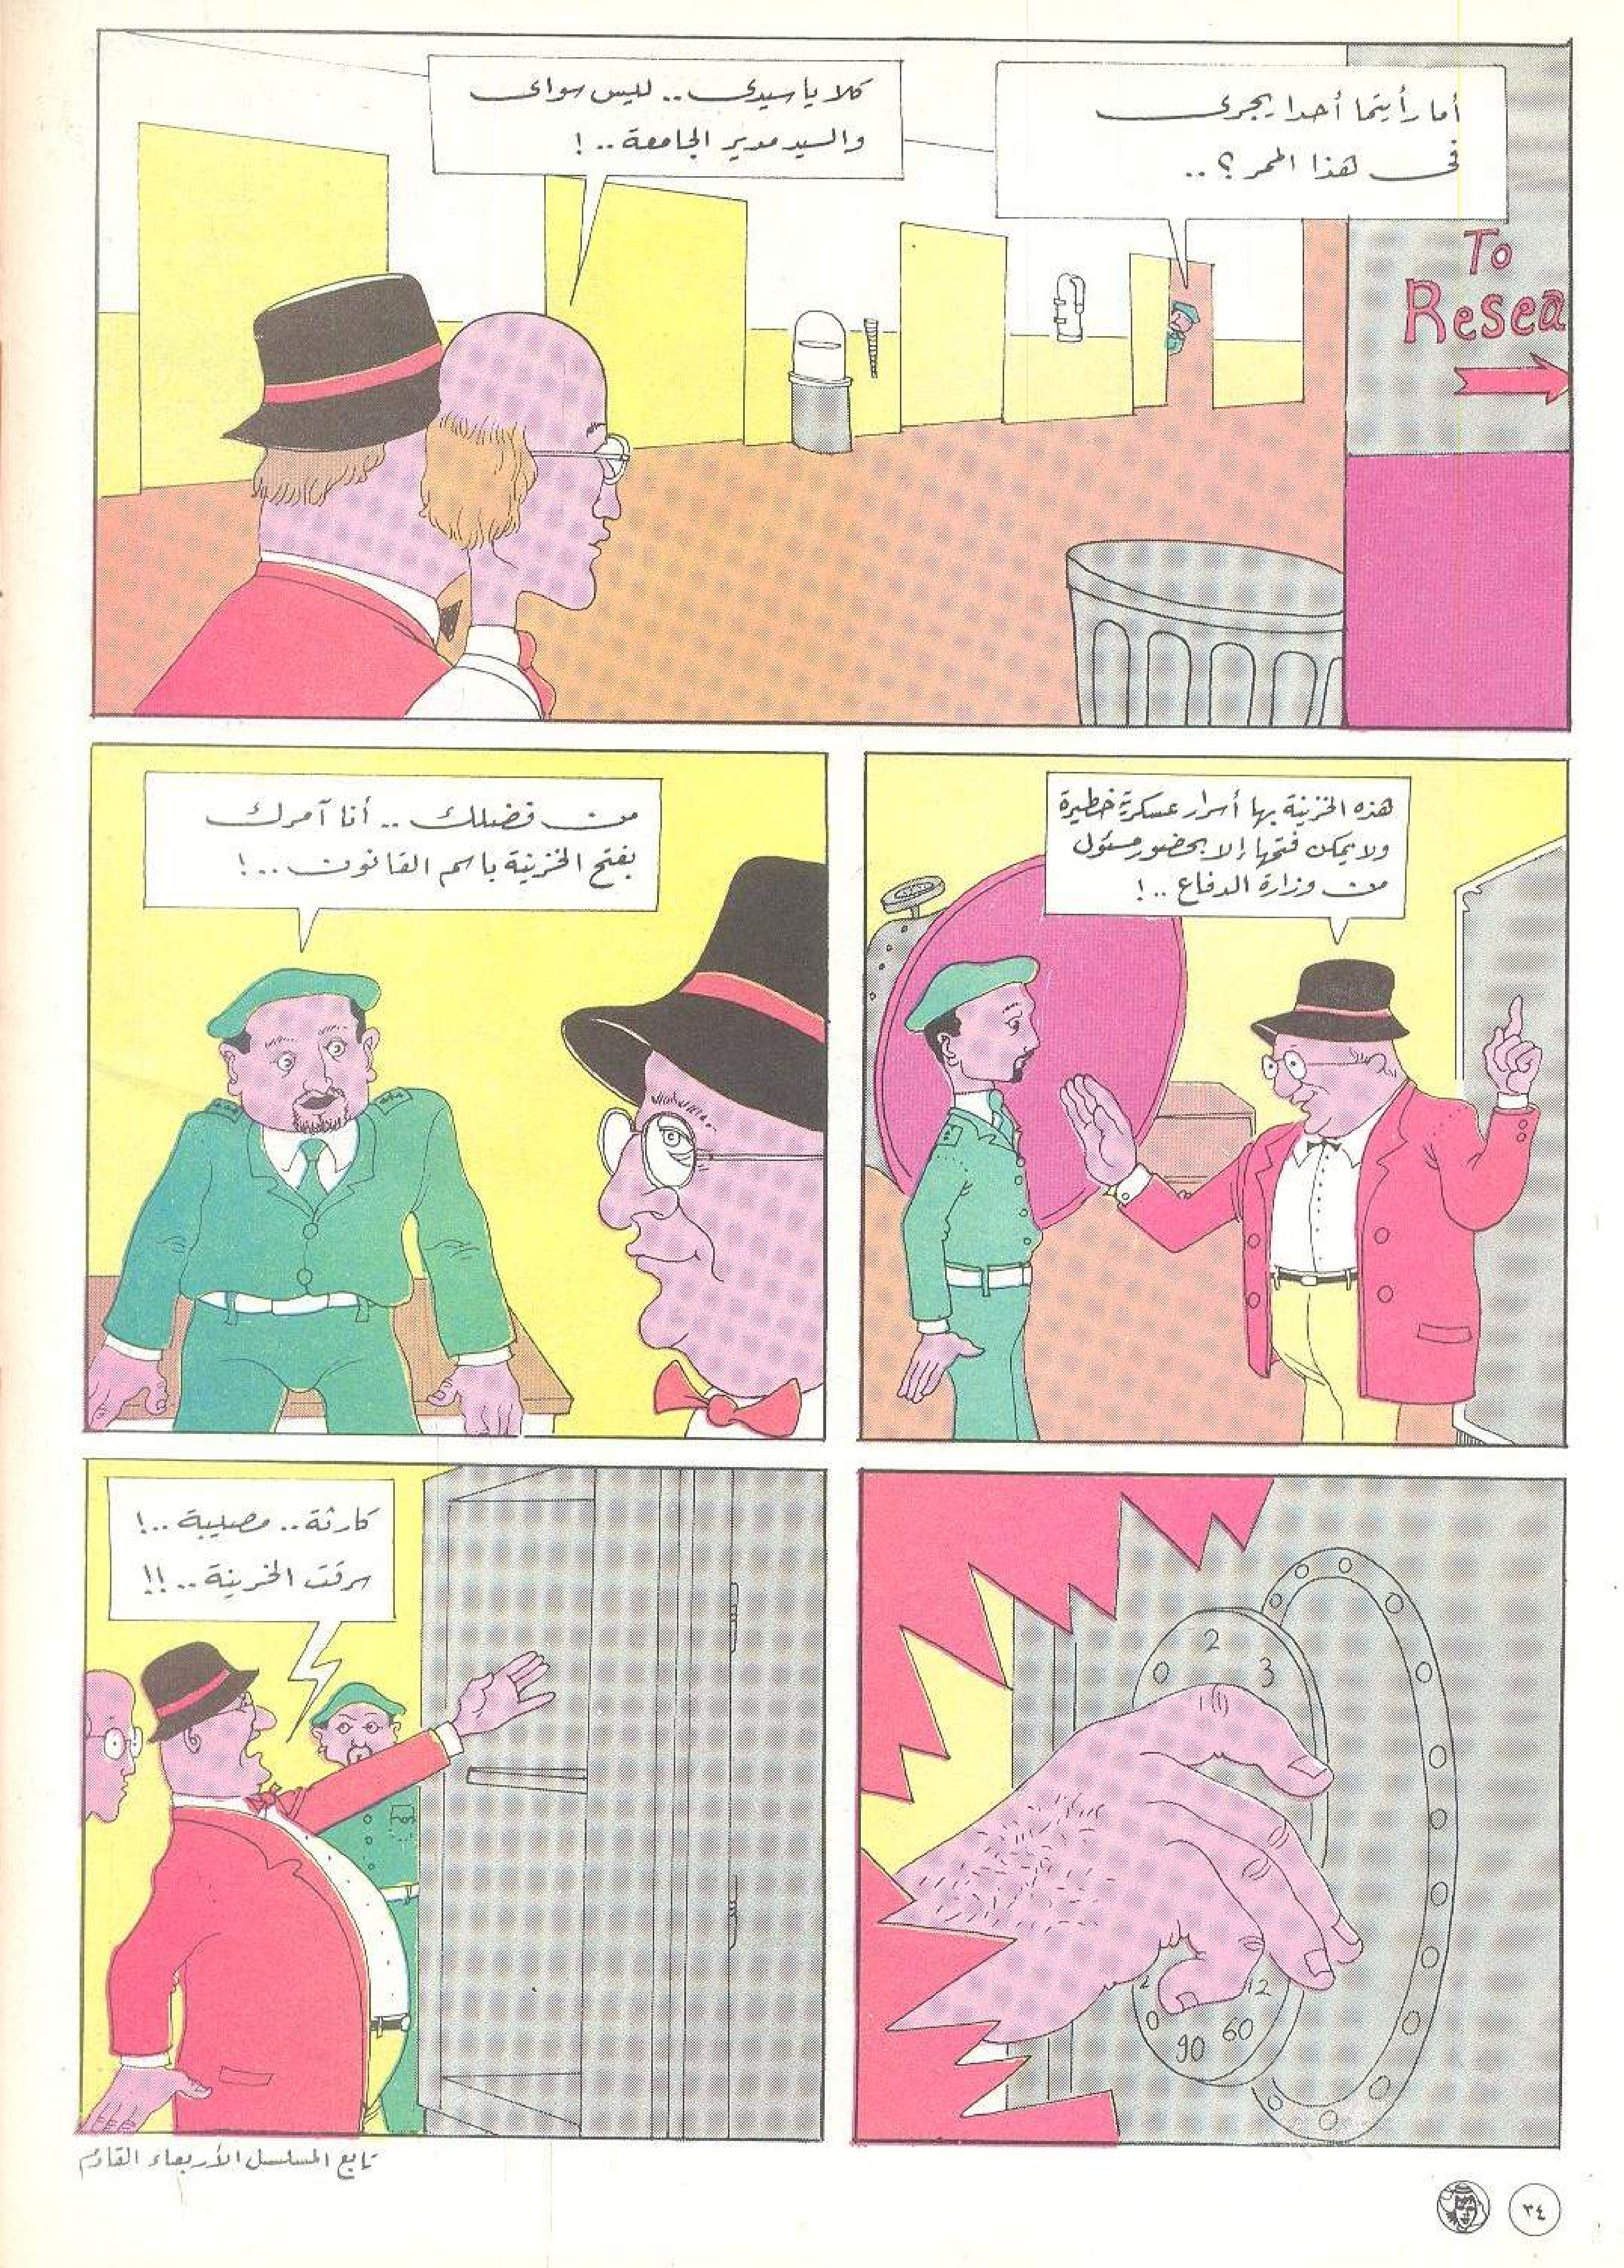 أما رأيتما أحدا يجرى
فى هذا الممر ؟ ..
كلا يا سيدى .. ليس سواى
والسيد مدير الجامعة .. !
To
Resea
هذه الخزينة بها أسرار عسكرية خطيرة
ولا يمكن فتحها إلا بحضور مسئول
من وزارة الدفاع .. !
من فضلك .. أنا آمرك
بفتح الخزينة باسم القانون .. !
2
3
12
60
90
كارثة .. مصيبة .. !
سرقت الخزينة .. !!
تابع المسلسل الأربعاء القادم
٣٤